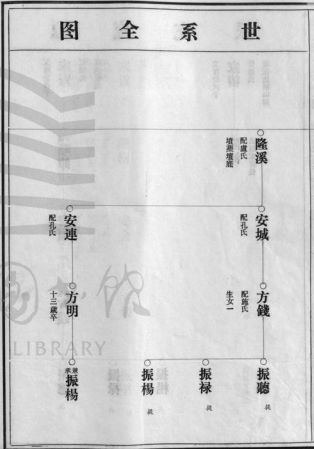 世系全图
隆溪
配盧氏
墳葬壇底
安城
配孔氏
安連
配孔氏
方錢
配施氏
生女一
方明
十三歲卒
振聽
振祿
振楊
兼承振楊
LIBRARY